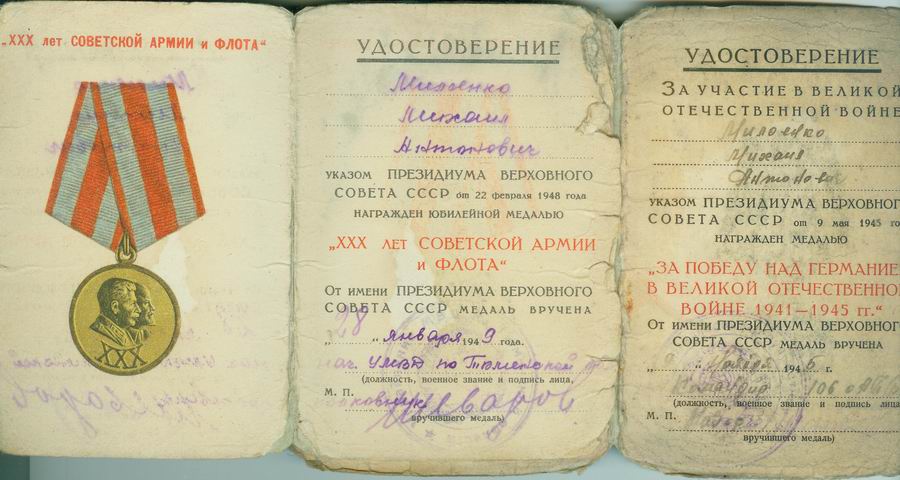 „XXX лет СОВЕТСКОЙ АРМИИ и ФЛОТА“
XXX
УДОСТОВЕРЕНИЕ
Михаил
Антонович
указом ПРЕЗИДИУМА ВЕРХОВНОГО
СОВЕТА СССР от 22 февраля 1948 года
НАГРАЖДЕН ЮБИЛЕЙНОЙ МЕДАЛЬЮ
„XXX лет СОВЕТСКОЙ АРМИИ
и ФЛОТА“
От имени ПРЕЗИДИУМА ВЕРХОВНОГО
СОВЕТА СССР медаль вручена
„28“ января 1949 года.
нач. УМВД по Тюменской
(должность, военное звание и подпись лица,
М. П.
вручившего медаль)
УДОСТОВЕРЕНИЕ
За участие в Великой
Отечественной войне
Михаил
указом ПРЕЗИДИУМА ВЕРХОВНОГО
СОВЕТА СССР от 9 мая 1945 го
НАГРАЖДЕН МЕДАЛЬЮ
„ЗА ПОБЕДУ НАД ГЕРМАНИЕ
В ВЕЛИКОЙ ОТЕЧЕСТВЕННО
ВОЙНЕ 1941—1945 гг.“
От имени ПРЕЗИДИУМА ВЕРХОВНОГ
СОВЕТА СССР медаль вручена
1946 г.
(должность, военное звание и подпись лица
М. П.
вручившего медаль)